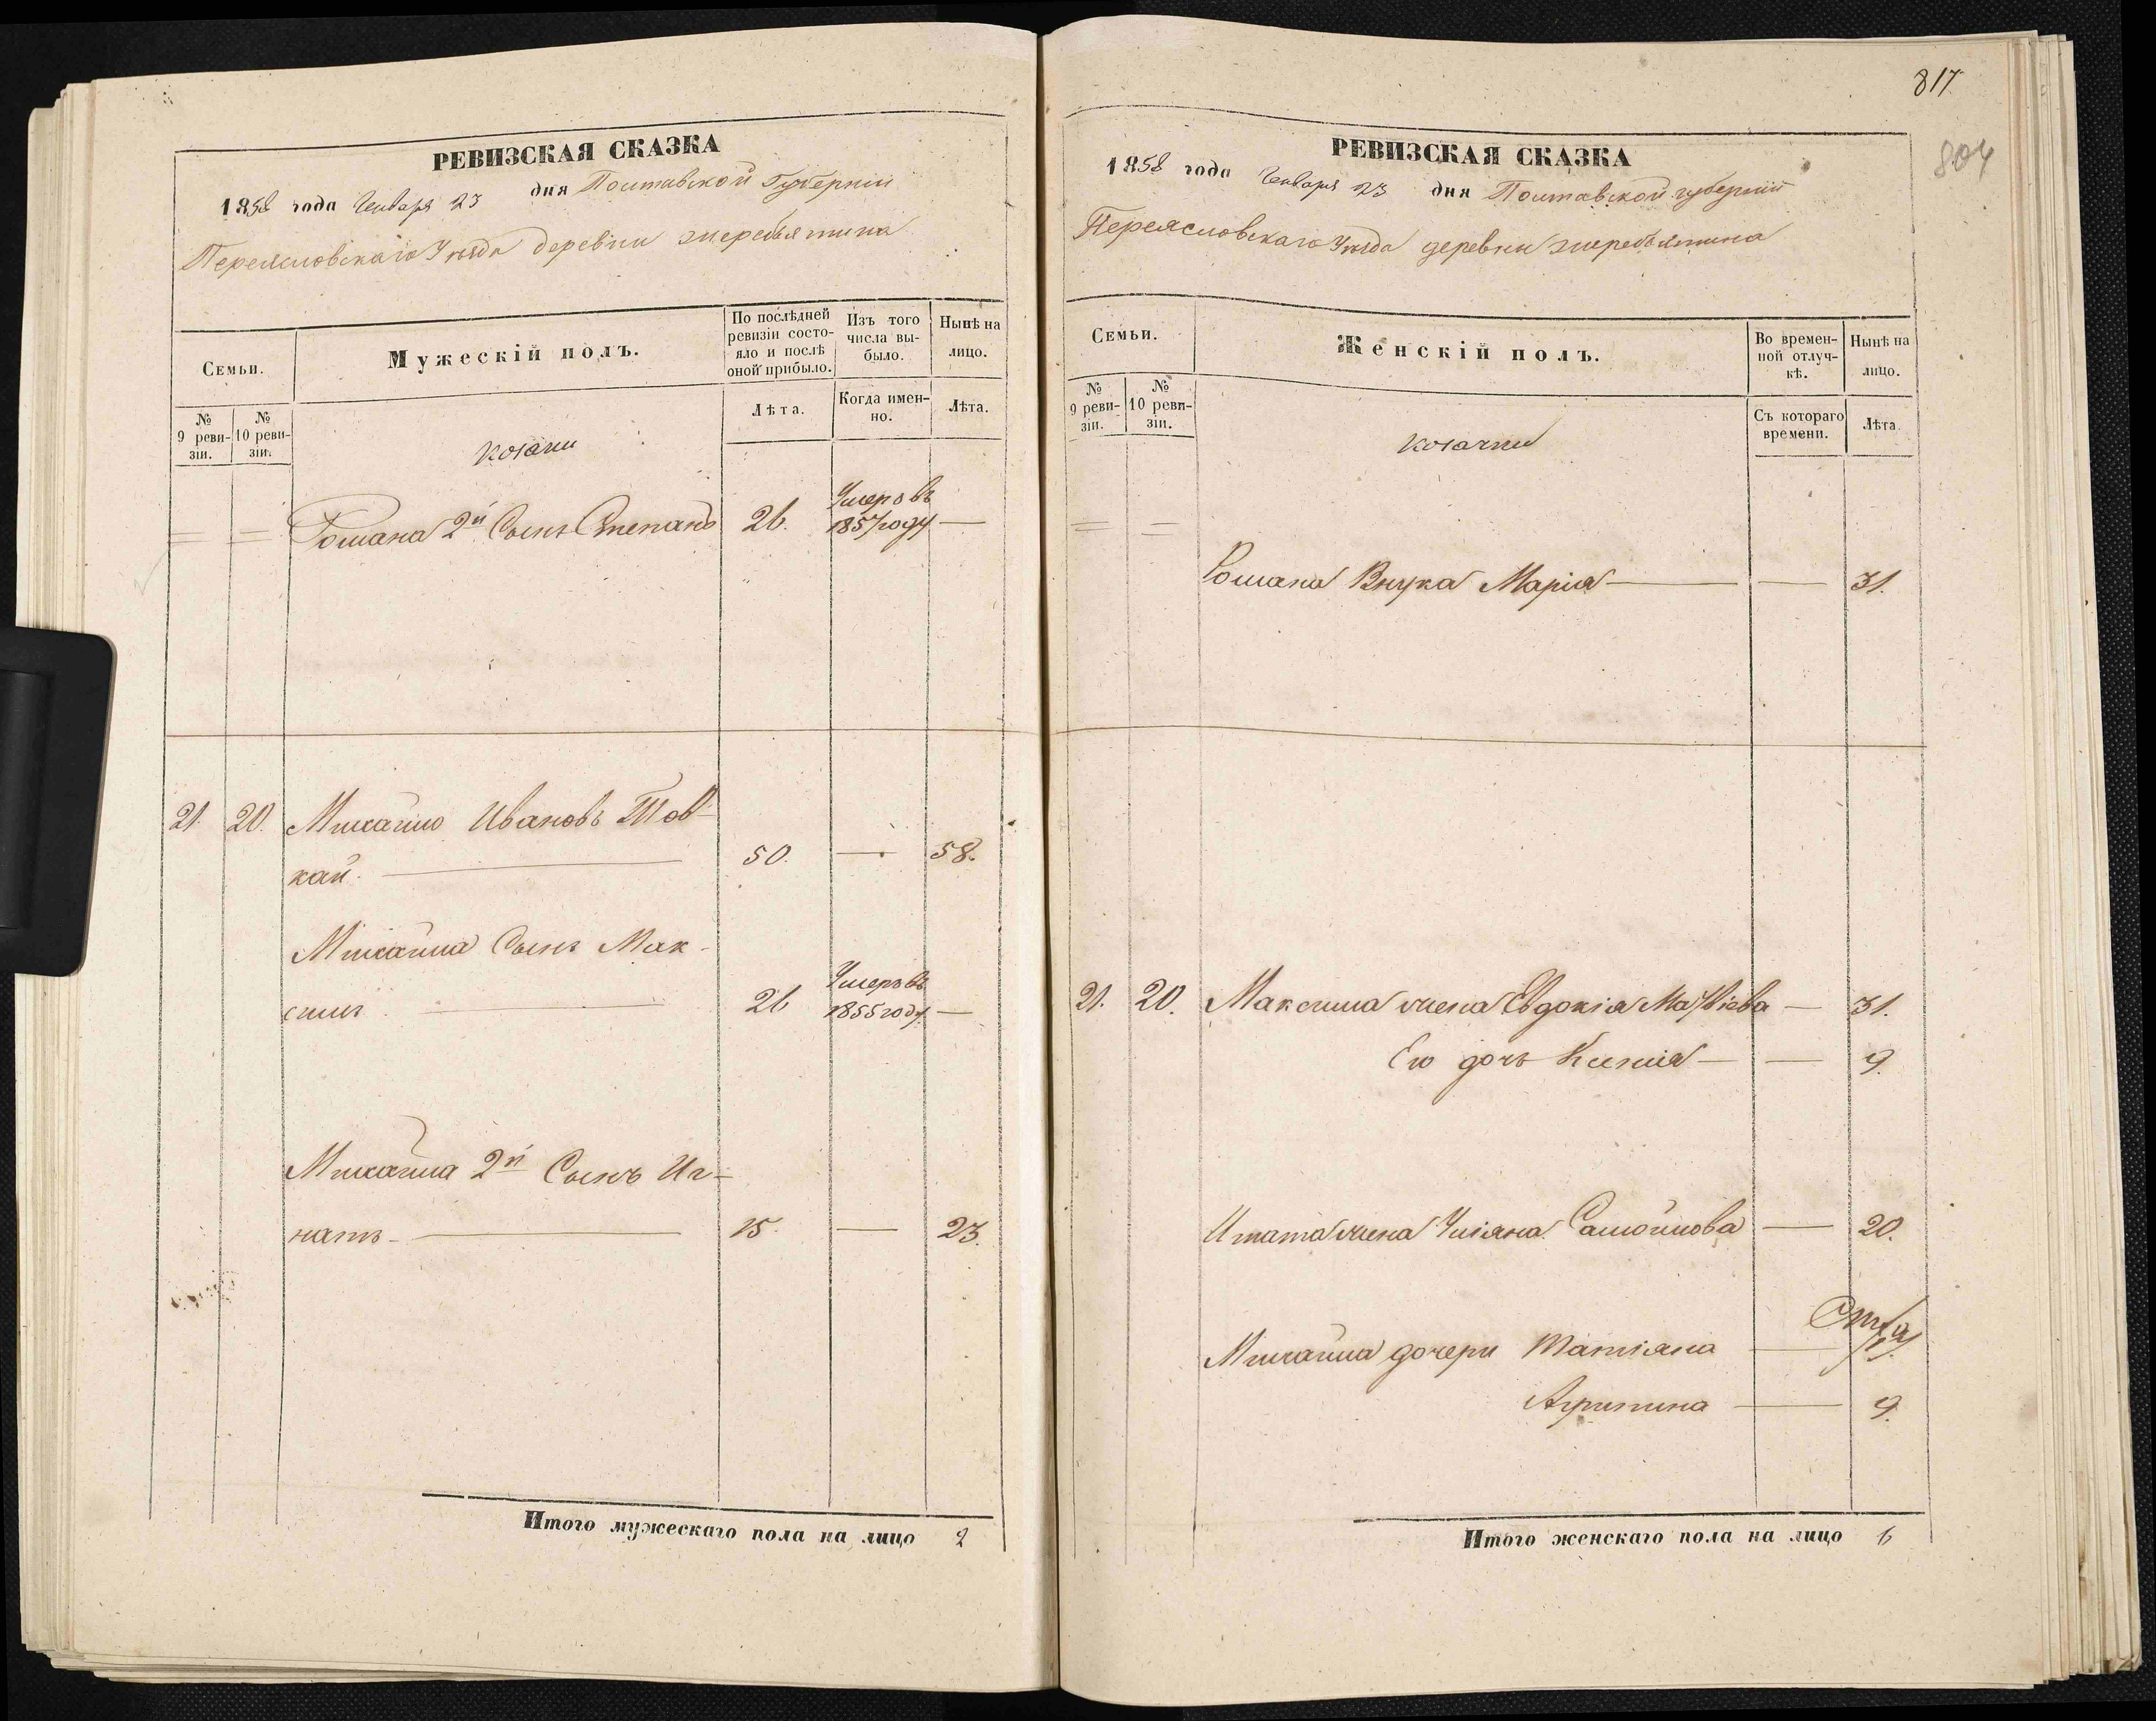 РЕВИЗСКАЯ СКАЗКА
1858 года Генваря 23 дня Полтавской Губерніи
Переясловскаго Уѣзда деревни
Семьи.
Мужескій полъ.
По послѣдней ревизіи состояло и послѣ оной прибыло.
Изъ того числа выбыло.
Нынѣ на лицо.
№ 9 ревизіи.
№ 10 ревизіи.
козаки
Лѣта.
Когда именно.
Лѣта.
Романа 2й Сынъ Степанъ 26. Умеръ въ 1857 году —
21. 20. Михайло Ивановъ Тов-
кай. — 50. — 58.
Михайла Сынъ Мак-
симъ — 26 Умеръ въ 1855 году —
Михайла 2й Сынъ Иг-
натъ — 15. — 23.
Итого мужескаго пола на лицо 2
817
804
РЕВИЗСКАЯ СКАЗКА
1858 года Генваря 23 дня Полтавской губерніи
Переясловскаго Уѣзда деревни
Семьи.
Женскій полъ.
Во временной отлучкѣ.
Нынѣ на лицо.
№ 9 ревизіи.
№ 10 ревизіи.
козачки
Съ котораго времени.
Лѣта.
Романа Внука Марія — — 31.
21. 20. Максима жена Евдокія — 31.
Его дочь Ксенія — — 9.
Игната жена Уліяна Самойлова — 20.
Михайла дочери Татіяна —
Агрипина — 9.
Итого женскаго пола на лицо 6